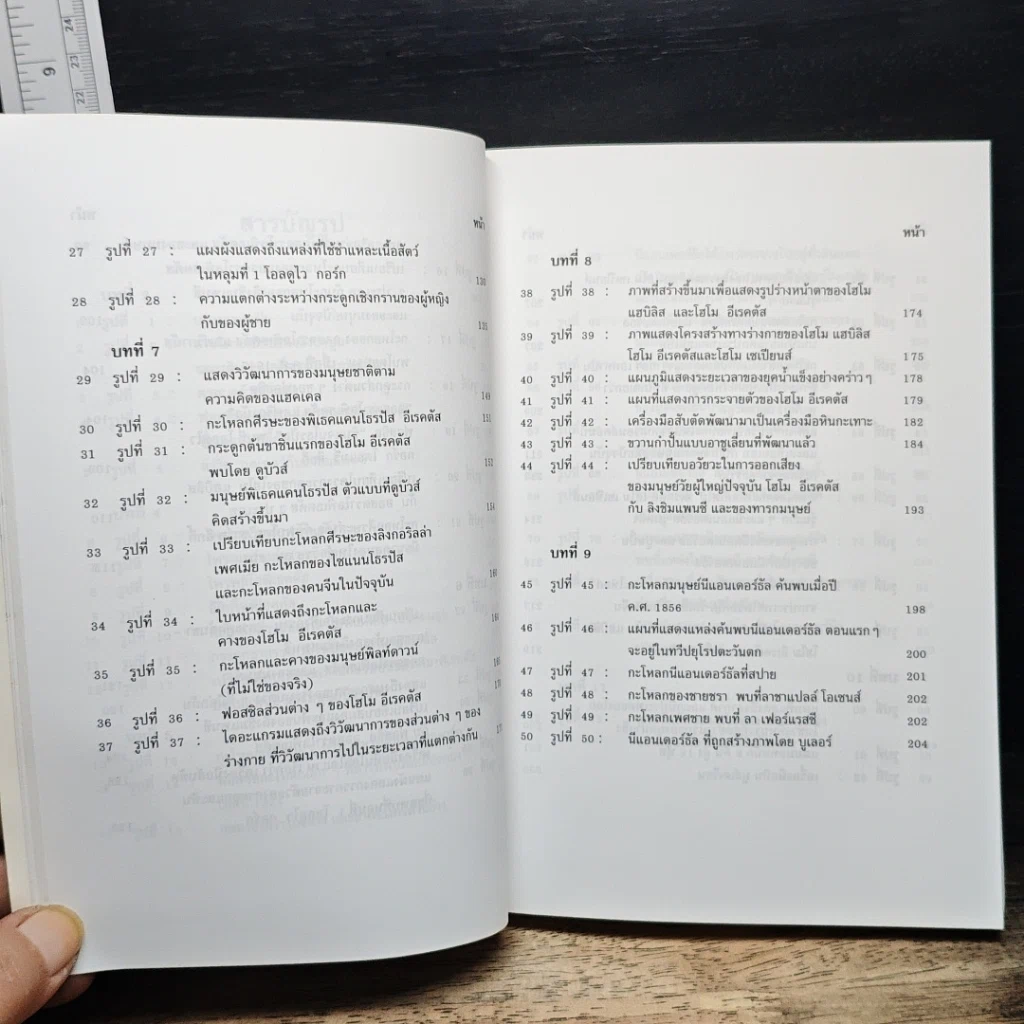 หน้า
27 รูปที่ 27 : แผงผังแสดงถึงแหล่งที่ใช้ชำแหละเนื้อสัตว์
ในหลุมที่ 1 โอลดูไว กอร์ก
28 รูปที่ 28 : ความแตกต่างระหว่างกระดูกเชิงกรานของผู้หญิง
กับของผู้ชาย
บทที่ 7
29 รูปที่ 29 : แสดงวิวัฒนาการของมนุษยชาติตาม
ความคิดของแฮคเคล
30 รูปที่ 30 : กะโหลกศีรษะของพิเธคแคนโธรปัส อีเรคตัส
31 รูปที่ 31 : กระดูกต้นขาชิ้นแรกของโฮโม อีเรคตัส
พบโดย ดูบัวส์
32 รูปที่ 32 : มนุษย์พิเธคแคนโธรปัส ตัวแบบที่ดูบัวส์
คิดสร้างขึ้นมา
33 รูปที่ 33 : เปรียบเทียบกะโหลกศีรษะของลิงกอริลล่า
เพศเมีย กะโหลกของไซแนนโธรปัส
และกะโหลกของคนจีนในปัจจุบัน
34 รูปที่ 34 : ใบหน้าที่แสดงถึงกะโหลกและ
คางของโฮโม อีเรคตัส
35 รูปที่ 35 : กะโหลกและคางของมนุษย์พิลท์ดาวน์
(ที่ไม่ใช่ของจริง)
36 รูปที่ 36 : ฟอสซิลส่วนต่าง ๆ ของโฮโม อีเรคตัส
37 รูปที่ 37 : ไดอะแกรมแสดงถึงวิวัฒนาการของส่วนต่าง ๆ ของ
ร่างกาย ที่วิวัฒนาการไปในระยะเวลาที่แตกต่างกัน
หน้า
บทที่ 8
38 รูปที่ 38 : ภาพที่สร้างขึ้นมาเพื่อแสดงรูปร่างหน้าตาของโฮโม
แฮบิลิส และโฮโม อีเรคตัส 174
39 รูปที่ 39 : ภาพแสดงโครงสร้างทางร่างกายของโฮโม แฮบิลิส
โฮโม อีเรคตัสและโฮโม เซเปียนส์ 175
40 รูปที่ 40 : แผนภูมิแสดงระยะเวลาของยุคน้ำแข็งอย่างคร่าว ๆ 178
41 รูปที่ 41 : แผนที่แสดงการกระจายตัวของโฮโม อีเรคตัส 179
42 รูปที่ 42 : เครื่องมือสับตัดพัฒนามาเป็นเครื่องมือหินกะเทาะ 182
43 รูปที่ 43 : ขวานกำปั้นแบบอาชูเลี่ยนที่พัฒนาแล้ว 184
44 รูปที่ 44 : เปรียบเทียบอวัยวะในการออกเสียง
ของมนุษย์วัยผู้ใหญ่ปัจจุบัน โฮโม อีเรคตัส
กับ ลิงชิมแพนซี และของทารกมนุษย์ 193
บทที่ 9
45 รูปที่ 45 : กะโหลกมนุษย์นีแอนเดอร์ธัล ค้นพบเมื่อปี
ค.ศ. 1856 198
46 รูปที่ 46 : แผนที่แสดงแหล่งค้นพบนีแอนเดอร์ธัล ตอนแรก ๆ
จะอยู่ในทวีปยุโรปตะวันตก 200
47 รูปที่ 47 : กะโหลกนีแอนเดอร์ธัลที่สปาย 201
48 รูปที่ 48 : กะโหลกของชายชรา พบที่ลาชาแปลล์ โอเซนส์ 202
49 รูปที่ 49 : กะโหลกเพศชาย พบที่ ลา เฟอร์แรสซี 202
50 รูปที่ 50 : นีแอนเดอร์ธัล ที่ถูกสร้างภาพโดย บูเลอร์ 204
9
24
23
22